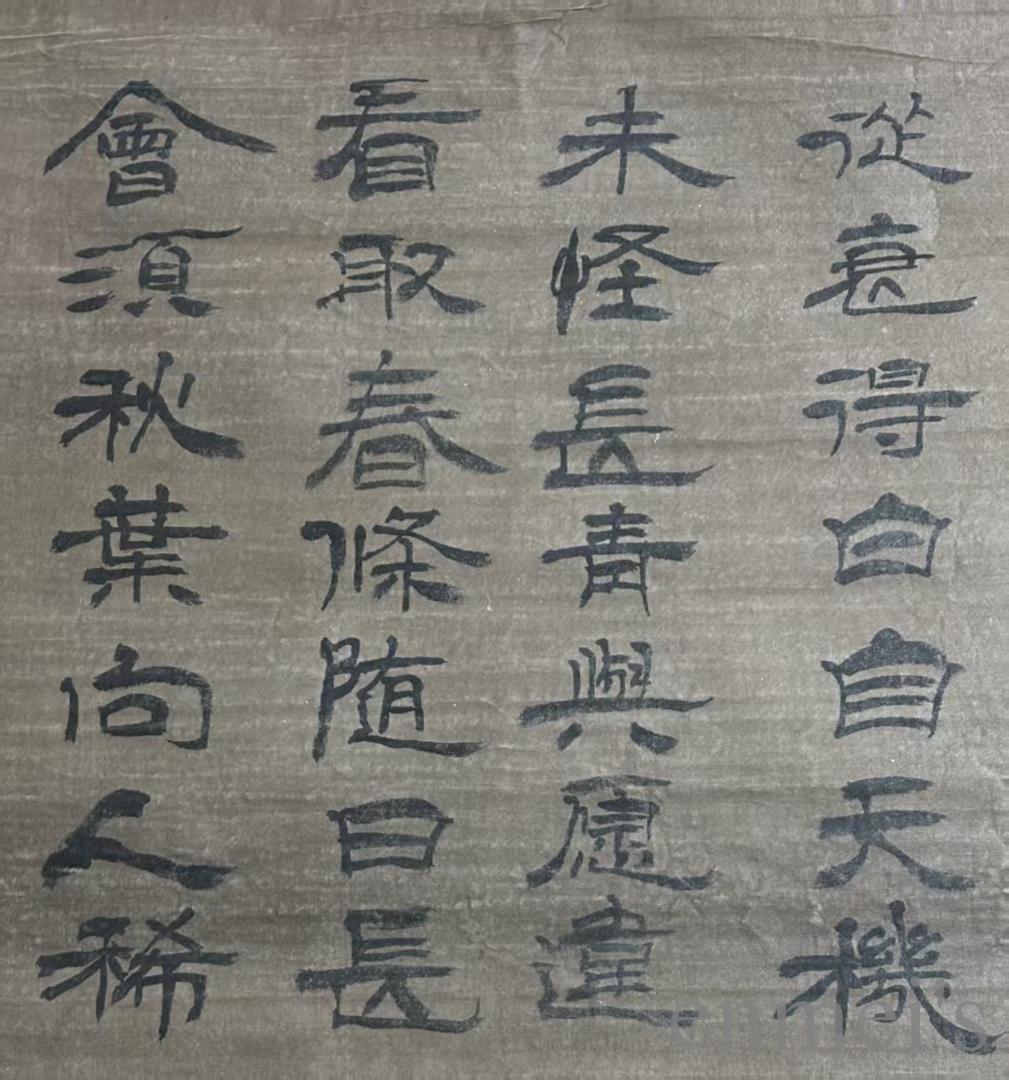 從衰得白自天機
未怪長青與愿違
看取春條随日長
會須秋葉向人稀